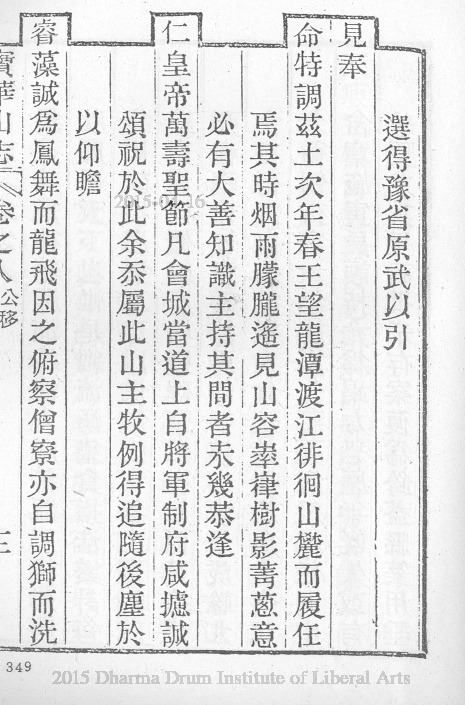 選得豫省原武以引
見奉
命特調茲土次年春王望龍潭渡江徘徊山麓而履任
焉其時烟雨朦朧遙見山容崒嵂樹影菁蔥意
必有大善知識主持其間者未幾恭逢
仁皇帝萬壽聖節凡會城當道上自將軍制府咸攄誠
頌祝於此余忝屬此山主牧例得追隨後塵於
以仰瞻
睿藻誠為鳳舞而龍飛因之俯察僧寮亦自調獅而洗
寶華山志 卷之八 公移
349
2015 Dharma Drum Institute of Liberal Arts